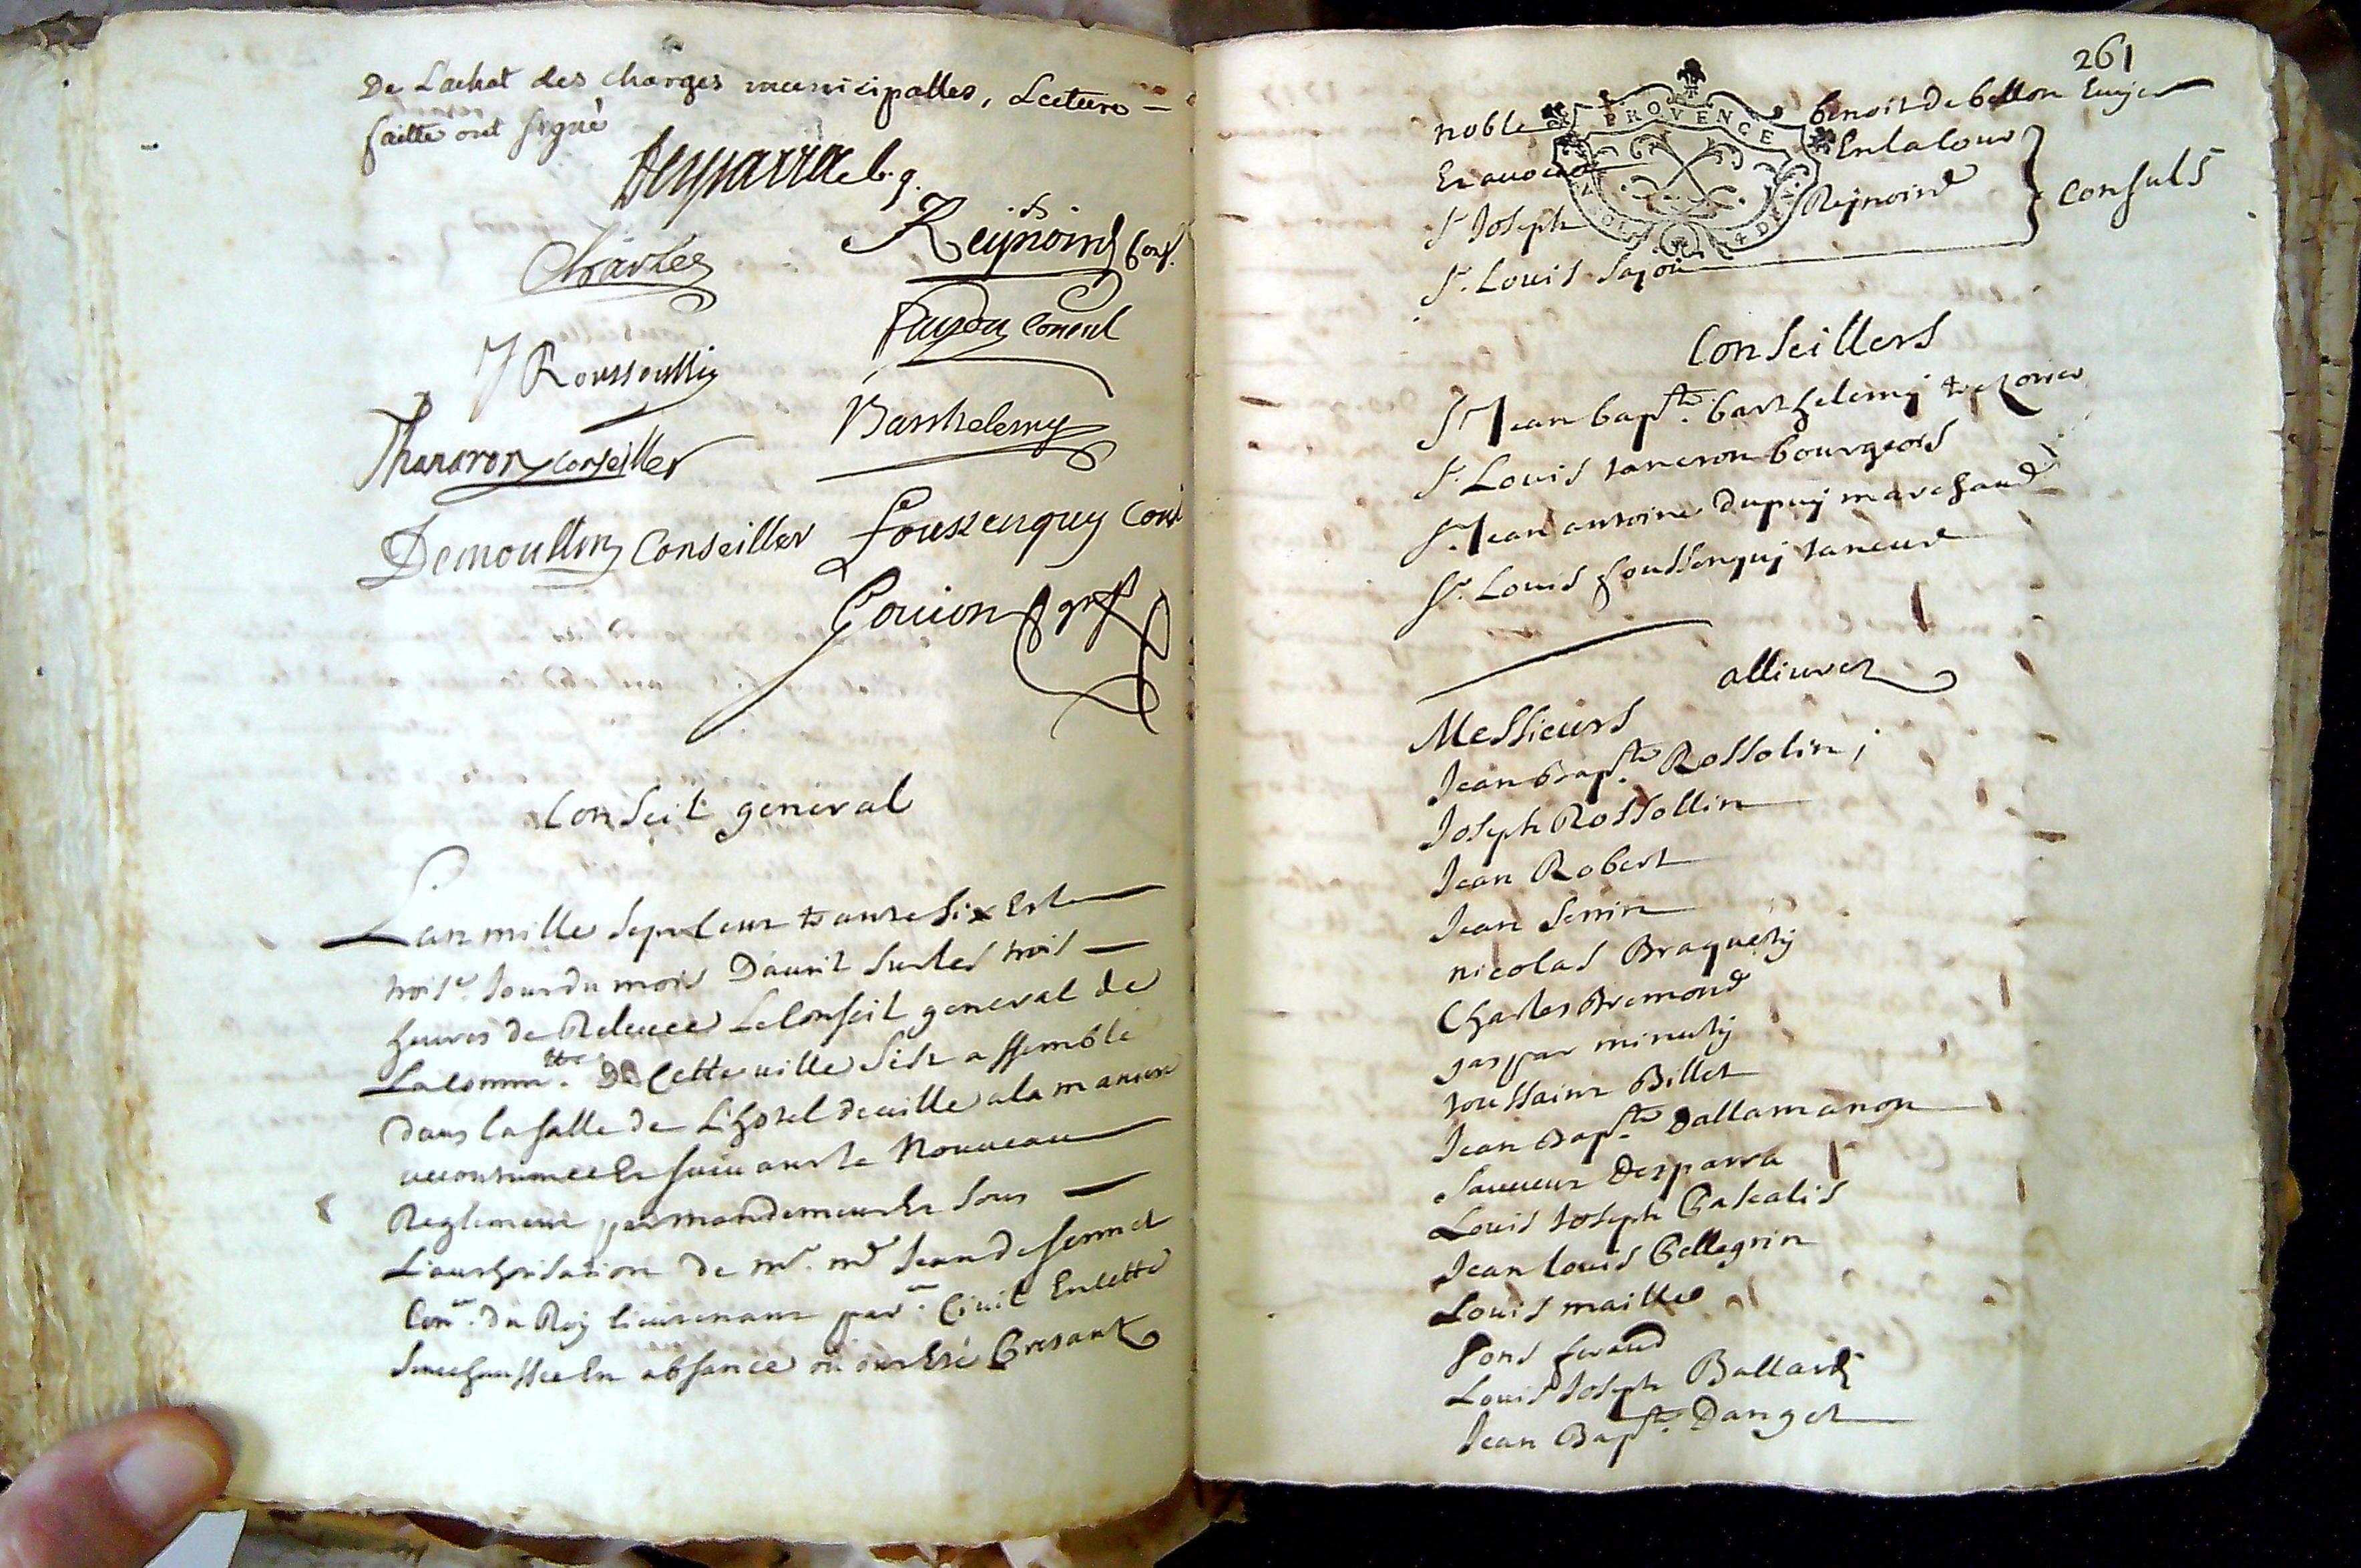 De Lachat des charges municipalles, Lecture
faitte ont signé
Desparra l.g.
Charles
Reijnoird Cons.
J Roussoulliy
Consul
Thaneron conseiller
Barthelemy
Demoullin Conseiller
foussenquy Cons
Gouion greff
Conseil general
Lan mille sept cent trante six Et le
trois.e Jour du mois Dauril sur les trois
heures de Releuee Le Conseil general de
La comm.tté De Cette uille sest assemblé
dans la salle de Lhotel de uille a la maniere
accoutumee Et suiuant le Nouueau
Reglement par mandement Et sous
Lauthorisation de m.r m.e Jean de sermet
Con.er du Roy lieutenant par.er Ciuil En cette
senechaussee En absance ou ont Eté Presants
261
noble benoit de bellon Ecuijer
Et auocat En la Cour
S.r Joseph Reijnoird
S.r Louis
Consuls
PROVENCE
Conseillers
S.r Jean bap.te barthelemij trezorier
S.r Louis taneron bourgeois
S.r Jean antoine dupuij marchand
S.r Louis foussenquij taneur
alliurez
Messieurs
Jean Bap.te Rossolin;
Joseph Rossollin
Jean Robert
Jean Serrin
nicolas Braquetij
Charles Bremond
gaspar minutij
toussaint Billet
Jean Bap.te Dallamanon
Sauueur Desparra
Louis Joseph Pascalis
Jean Louis Pellegrin
Louis maille
Pons feraud
Louis Joseph Ballard
Jean Bap.te Danget